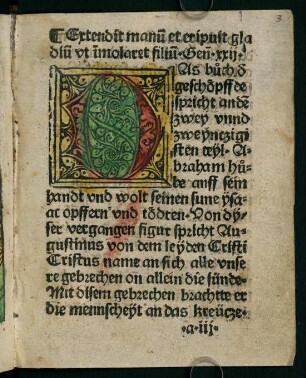 3
¶ Extendit manū et eripuit gla
diū vt īmolaret filiū · Gen̄ · xxij ·
DAs bůch d̓
geschöpff de
spricht an dē
zwey vnnd
zweyntzigi
sten teyl · A
braham hů
be auff sein
handt vnd wolt seinen sune ysa
ac opffern vnd tödten · Von dy
ser vergangen figur spricht Au
gustinus von dem leyden Cristi
Cristus name an sich alle vnse
re gebrechen on allein die sünde ·
Mit disem gebrechen brachtte er
die mennscheyt an das kreücze ·
a · iij ·